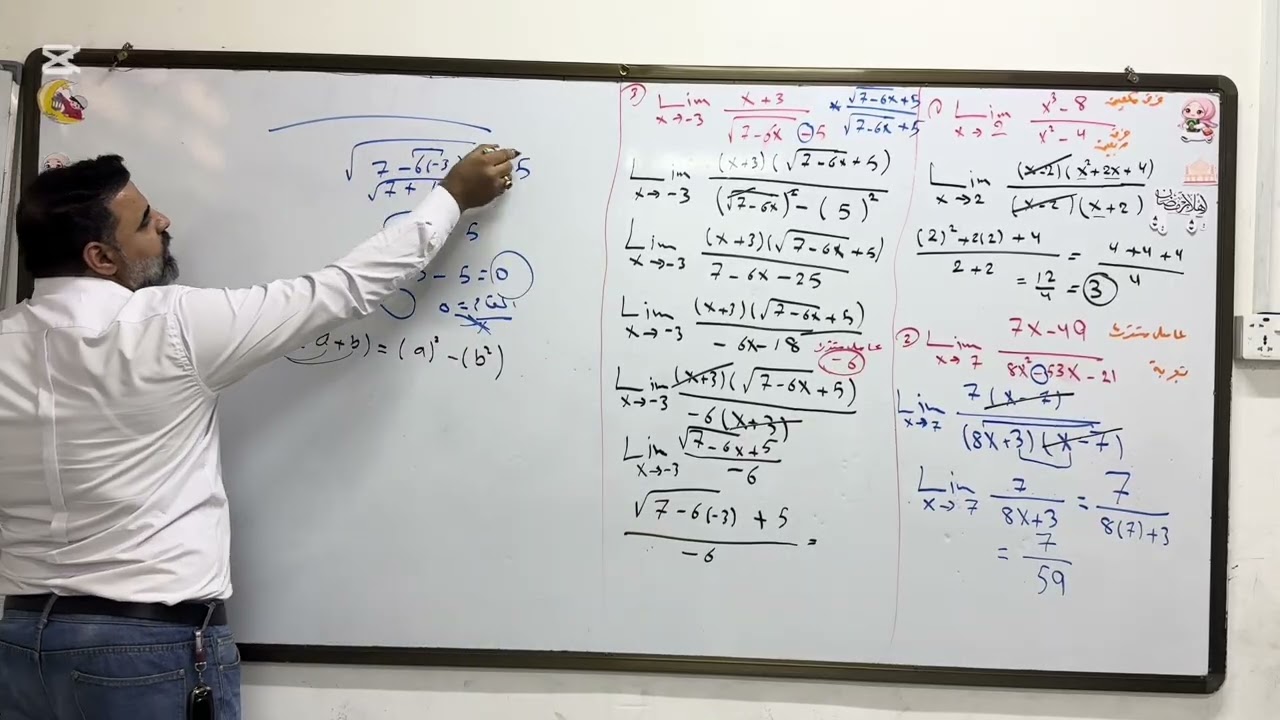 √7 - 6(-3) 5
√7 +
5
- 5 = 0
a + b) = (a)² - (b²)
3) Lim x→-3 x + 3 / √7-6x - 5 * √7-6x + 5 / √7-6x + 5
Lim x→-3 (x+3)(√7-6x + 5) / (√7-6x)² - (5)²
Lim x→-3 (x+3)(√7-6x + 5) / 7 - 6x - 25
Lim x→-3 (x+3)(√7-6x + 5) / -6x - 18
عامل مشترك -6
Lim x→-3 (x+3)(√7-6x + 5) / -6(x+3)
Lim x→-3 √7-6x + 5 / -6
√7 - 6(-3) + 5 / -6 =
1) Lim x→2 x³ - 8 / x² - 4 فرق مكعبين
فرق مربعين
Lim x→2 (x-2)(x² + 2x + 4) / (x-2)(x+2)
(2)² + 2(2) + 4 / 2 + 2 = 4 + 4 + 4 / 4
= 12/4 = 3
أهلا رمضان
2) Lim x→7 7x - 49 / 8x² - 53x - 21 عامل مشترك
تجربة
Lim x→7 7(x-7) / (8x+3)(x-7)
Lim x→7 7 / 8x+3 = 7 / 8(7)+3
= 7/59